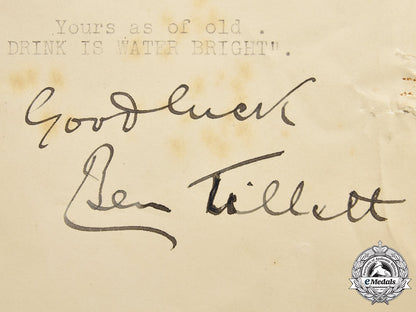 Yours as of old .
DRINK IS WATER BRIGHT".
Good luck
Ben Tillett
eMedals